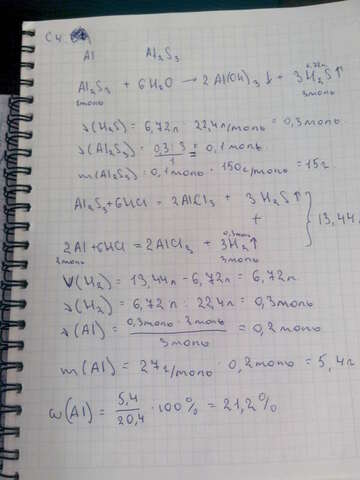 C4.
Al Al₂S₃
6,72л
Al₂S₃ + 6H₂O → 2Al(OH)₃↓ + 3H₂S↑
3моль
ν(H₂S) = 6,72л : 22,4л/моль = 0,3моль.
ν(Al₂S₃) = 0,3·1/3 = 0,1моль
m(Al₂S₃) = 0,1моль · 150г/моль = 15г.
Al₂S₃+6HCl = 2AlCl₃ + 3H₂S↑
+ } 13,44
0,3моль
2Al+6HCl = 2AlCl₃ + 3H₂↑
2моль 3моль
V(H₂) = 13,44л - 6,72л = 6,72л
ν(H₂) = 6,72л : 22,4л = 0,3моль
ν(Al) = 0,3моль · 2моль / 3моль = 0,2моль
m(Al) = 27г/моль · 0,2моль = 5,4г
ω(Al) = 5,4/20,4 · 100% = 21,2%